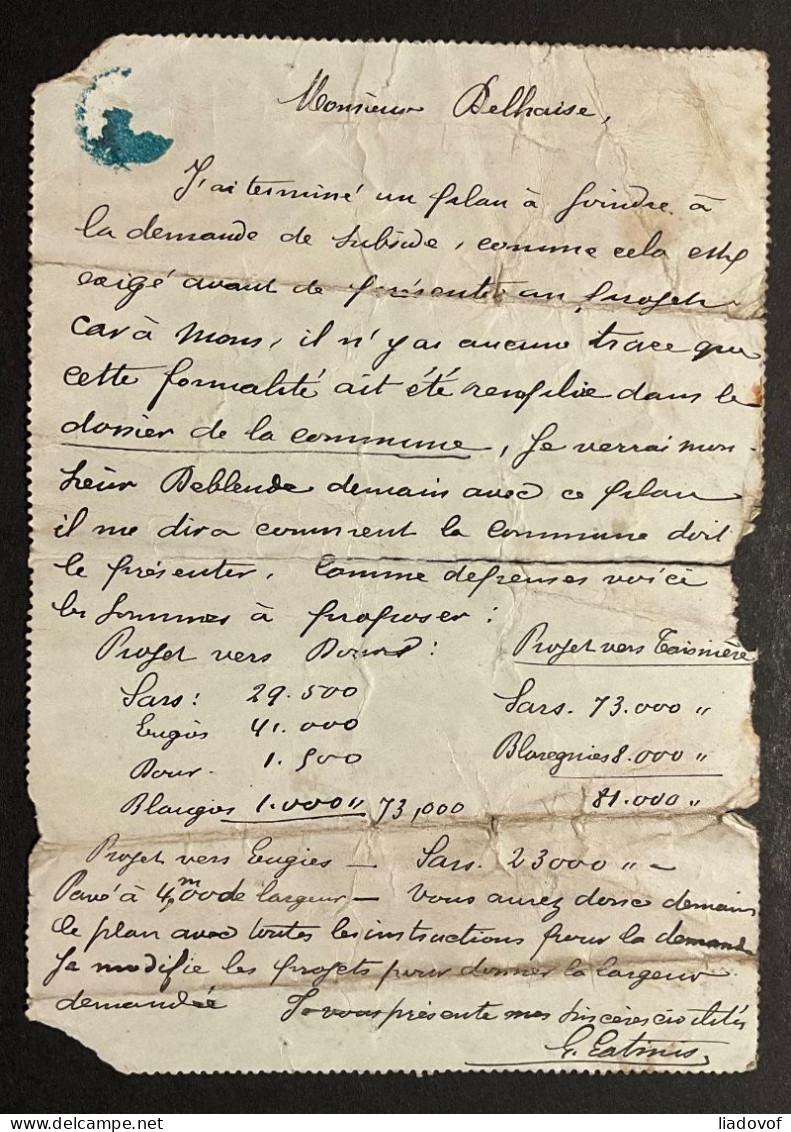 Monsieur Delhaise,
J'ai terminé un plan à joindre à
la demande de subside, comme cela est
exigé avant de présenter un projet
car à Mons, il n'y a aucune trace que
cette formalité ait été remplie dans le
dossier de la commune, Je verrai mon-
sieur Deblende demain avec ce plan
il me dira comment la commune doit
le présenter. Comme dépenses voici
les sommes à proposer :
Projet vers Dour : Projet vers Taisnière
Sars : 29.500 Sars. 73.000 "
Eugies 41.000
Dour. 1.500 Blaregnies 8.000 "
Blaugies 1.000 " 73,000 81.000 "
Projet vers Eugies — Sars. 23000 " —
Pavé à 4,00m de largeur — Vous aurez donc demain
le plan avec toutes les instructions pour la demande
Je modifie les projets pour donner la largeur
demandée Je vous présente mes sincères civilités
liadovof